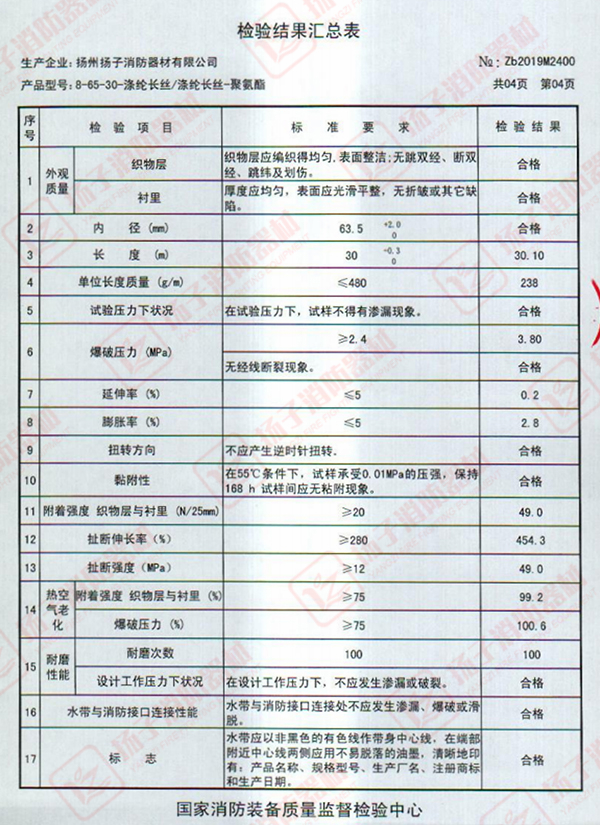 检验结果汇总表
生产企业: 扬州扬子消防器材有限公司 №: Zb2019M2400
产品型号: 8-65-30-涤纶长丝/涤纶长丝-聚氨酯 共04页 第04页
序号 检 验 项 目 标 准 要 求 检 验 结 果
1 外观质量 织物层 织物层应编织得均匀,表面整洁;无跳双经、断双
经、跳纬及划伤。 合格
衬里 厚度应均匀，表面应光滑平整，无折皱或其它缺
陷。 合格
2 内 径 (mm) 63.5 +2.0 0 合格
3 长 度 (m) 30 +0.3 0 30.10
4 单位长度质量 (g/m) ≤480 238
5 试验压力下状况 在试验压力下，试样不得有渗漏现象。 合格
6 爆破压力 (MPa) ≥2.4 3.80
无经线断裂现象。 合格
7 延伸率 (%) ≤5 0.2
8 膨胀率 (%) ≤5 2.8
9 扭转方向 不应产生逆时针扭转. 合格
10 黏附性 在55℃条件下，试样承受0.01MPa的压强，保持
168 h 试样间应无粘附现象。 合格
11 附着强度 织物层与衬里 (N/25mm) ≥20 49.0
12 扯断伸长率 (%) ≥280 454.3
13 扯断强度 (MPa) ≥12 49.0
14 热空气老化 附着强度 织物层与衬里 (%) ≥75 99.2
爆破压力 (%) ≥75 100.6
15 耐磨性能 耐磨次数 100 100
设计工作压力下状况 在设计工作压力下，不应发生渗漏或破裂。 合格
16 水带与消防接口连接性能 水带与消防接口连接处不应发生渗漏、爆破或滑
脱。 合格
17 标 志 水带应以非黑色的有色线作带身中心线，在端部
附近中心线两侧应用不易脱落的油墨，清晰地印
有：产品名称、规格型号、生产厂名、注册商标
和生产日期。 合格
国家消防装备质量监督检验中心
扬子消防器材